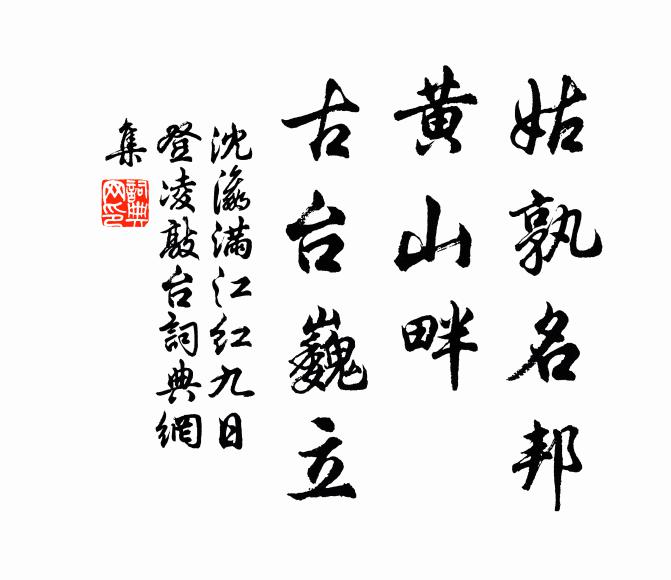 姑孰名邦
黄山畔
古台巍立
沈瀛满江红九日
登凌敲台詞典網
集
詞典
网印